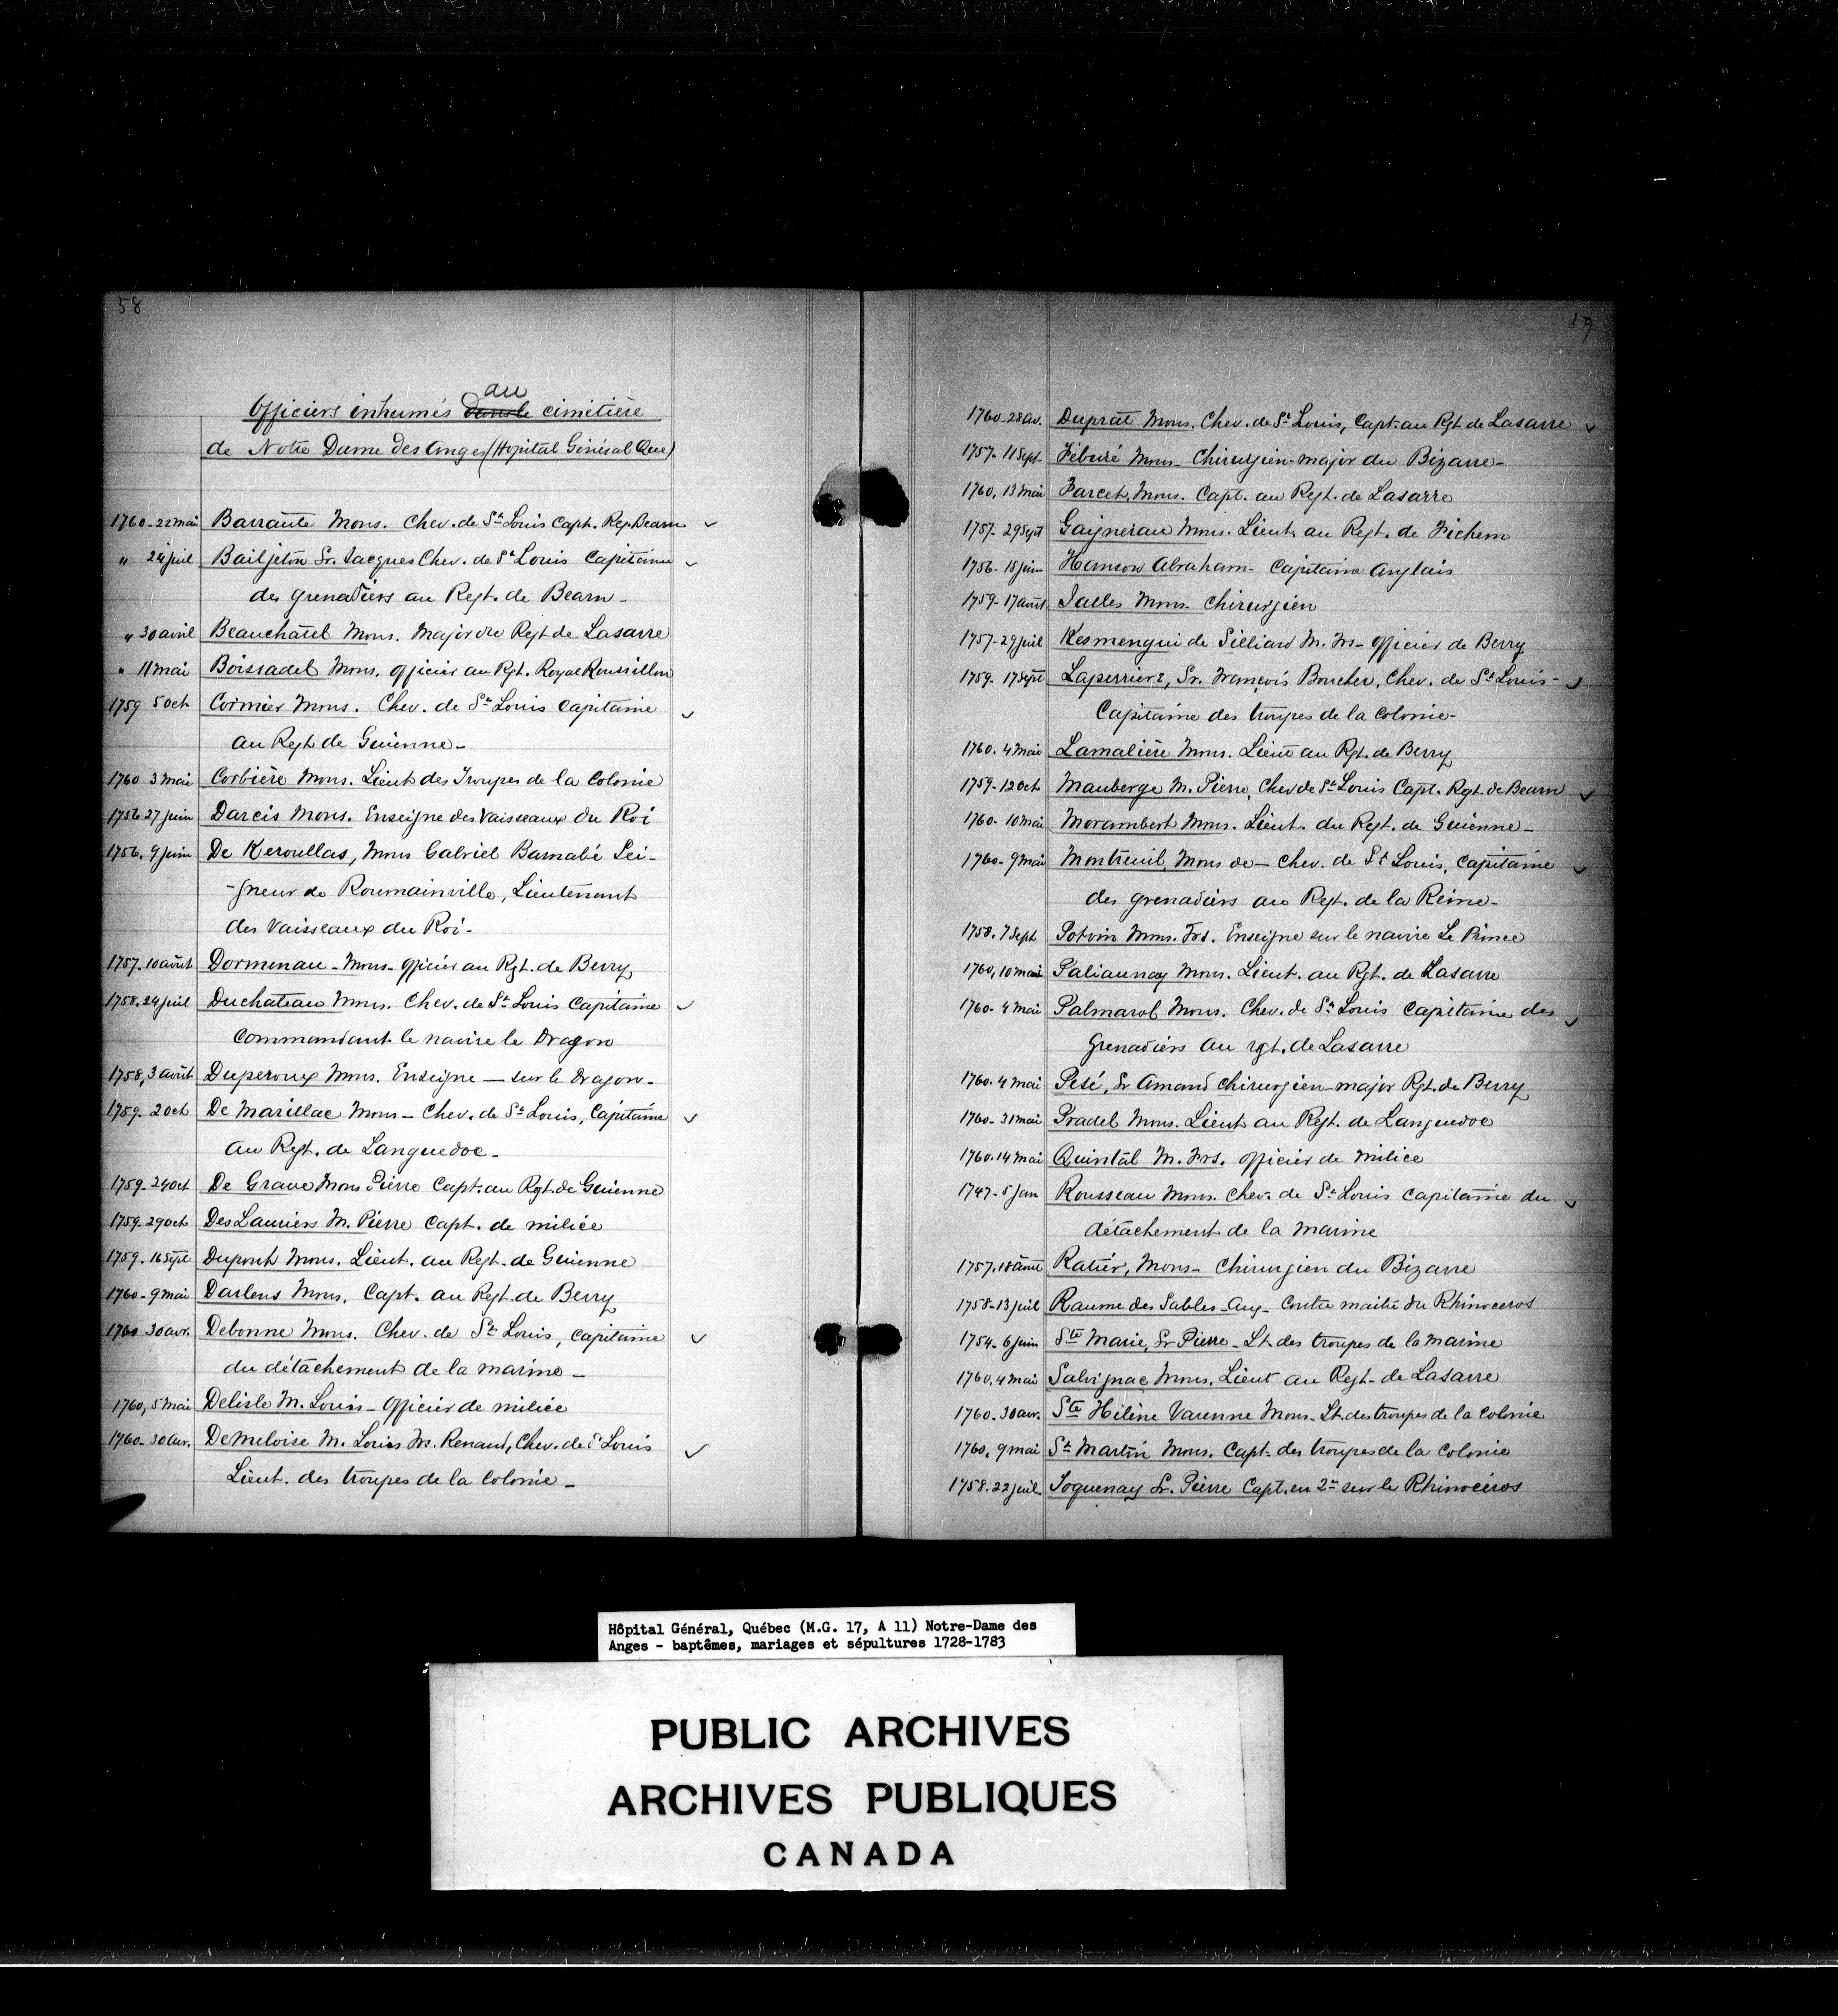 58
Officiers inhumés au cimetière
de Notre Dame des Anges (Hopital Général Que)
1760 - 22 mai Barraute Mons. Chev. de St Louis Capt. Reg. Bearn
" 24 juil Bailjeton Sr. Jacques Chev. de St Louis Capitaine
des grenadiers au Regt. de Bearn -
" 30 avril Beauchatel Mons. Major du Regt de Lasarre
" 11 mai Boissadel Mons. officier au Rgt. Royal Roussillon
1759 5 Oct Cormier Mons. Chev. de St Louis Capitaine
au Regt de Guienne -
1760 3 mai Corbière Mons. Lieut des Troupes de la Colonie
1756 27 juin Darcis Mons. Enseigne des Vaisseaux du Roi
1756. 9 juin De Keroullas, Mons Gabriel Barnabé Sei-
-gneur de Roumainville, Lieutenant
des Vaisseaux du Roi -
1757. 10 août Dormenau - Mons - officier au Rgt. de Berry
1758. 24 juil Duchateau Mons. Chev. de St Louis Capitaine
Commandant le navire le Dragon
1758, 3 août Duperoux Mons. Enseigne — sur le Dragon -
1759 - 2 oct De Marillac Mons - Chev. de St Louis, Capitaine
au Regt. de Languedoc -
1759 - 24 oct De Grave Mons Pierre Capt. au Rgt. de Guienne
1759 - 29 oct DesLauriers M. Pierre Capt. de milice
1759. 16 Sept Dupont Mons. Lieut. au Regt. de Guienne
1760 - 9 mai Darlens Mons. Capt. au Regt. de Berry
1760 30 avr. Debonne Mons. Chev. de St Louis, Capitaine
du détachement de la marine -
1760, 5 mai Delisle M. Louis - Officier de milice
1760 - 30 avr. DeMeloise M. Louis Frs. Renaud, Chev. de St Louis
Lieut. des troupes de la Colonie -
59
1760 - 28 av. Duprat Mons. Chev. de St Louis, Capt. au Rgt de Lasarre
1757 - 11 Sept Féburé Mons - Chirurgien-major du Bizarre -
1760, 13 mai Farcet, Mons. Capt. au Regt. de Lasarre
1757 - 29 Sept Gaignerau Mons. Lieut. au Regt. de Fichem
1756 - 18 juin Hanson Abraham - Capitaine Anglais
1759 - 17 août Jalles Mons - Chirurgien
1757 - 29 juil Kesmengui de Silliard M. Frs - officier de Berry
1759 - 17 Sept Laperriere, Sr. François Boucher, Chev. de St Louis -
Capitaine des troupes de la Colonie -
1760. 4 mai Lamalière Mons. Lieut au Rgt. de Berry
1759 - 12 oct Mauberge M. Pierre, Chev de St Louis Capt. Rgt. de Bearn
1760 - 10 mai Morambert Mons. Lieut. du Regt. de Guienne -
1760 - 9 mai Montreuil, Mons de - Chev. de St Louis, Capitaine
des grenadiers au Regt. de la Reine -
1758. 7 Sept Potvin Mons. Frs. Enseigne sur le navire Le Prince
1760, 10 mai Paliaunay Mons. Lieut. au Rgt. de Lasarre
1760 - 4 mai Palmarol Mons. Chev. de St Louis Capitaine des
Grenadiers au rgt. de Lasarre
1760. 4 mai Pesé, Sr Amand Chirurgien-major Rgt. de Berry
1760 - 31 mai Pradel Mons. Lieut au Regt. de Languedoc
1760. 14 mai Quintal M. Frs. officier de milice
1747 - 5 Jan Rousseau Mons. Chev. de St Louis Capitaine du
détachement de la marine
1757. 18 août Ratier, Mons - Chirurgien du Bizarre
1758 - 13 juil Raume des Sables - Aug - Contre maitre du Rhinoceros
1754 - 6 juin Ste Marie, Sr Pierre - Lt. des troupes de la marine
1760, 4 mai Salvignac Mons. Lieut au Regt - de Lasarre
1760 - 30 avr. Ste Hélène Varenne Mons - Lt. des troupes de la Colonie
1760, 9 mai St Martin Mons. Capt - des troupes de la Colonie
1758. 22 juil. Soquenay Sr. Pierre Capt. en 2nd sur le Rhinocéros
Hôpital Général, Québec (M.G. 17, A 11) Notre-Dame des
Anges - baptêmes, mariages et sépultures 1728-1783
PUBLIC ARCHIVES
ARCHIVES PUBLIQUES
CANADA